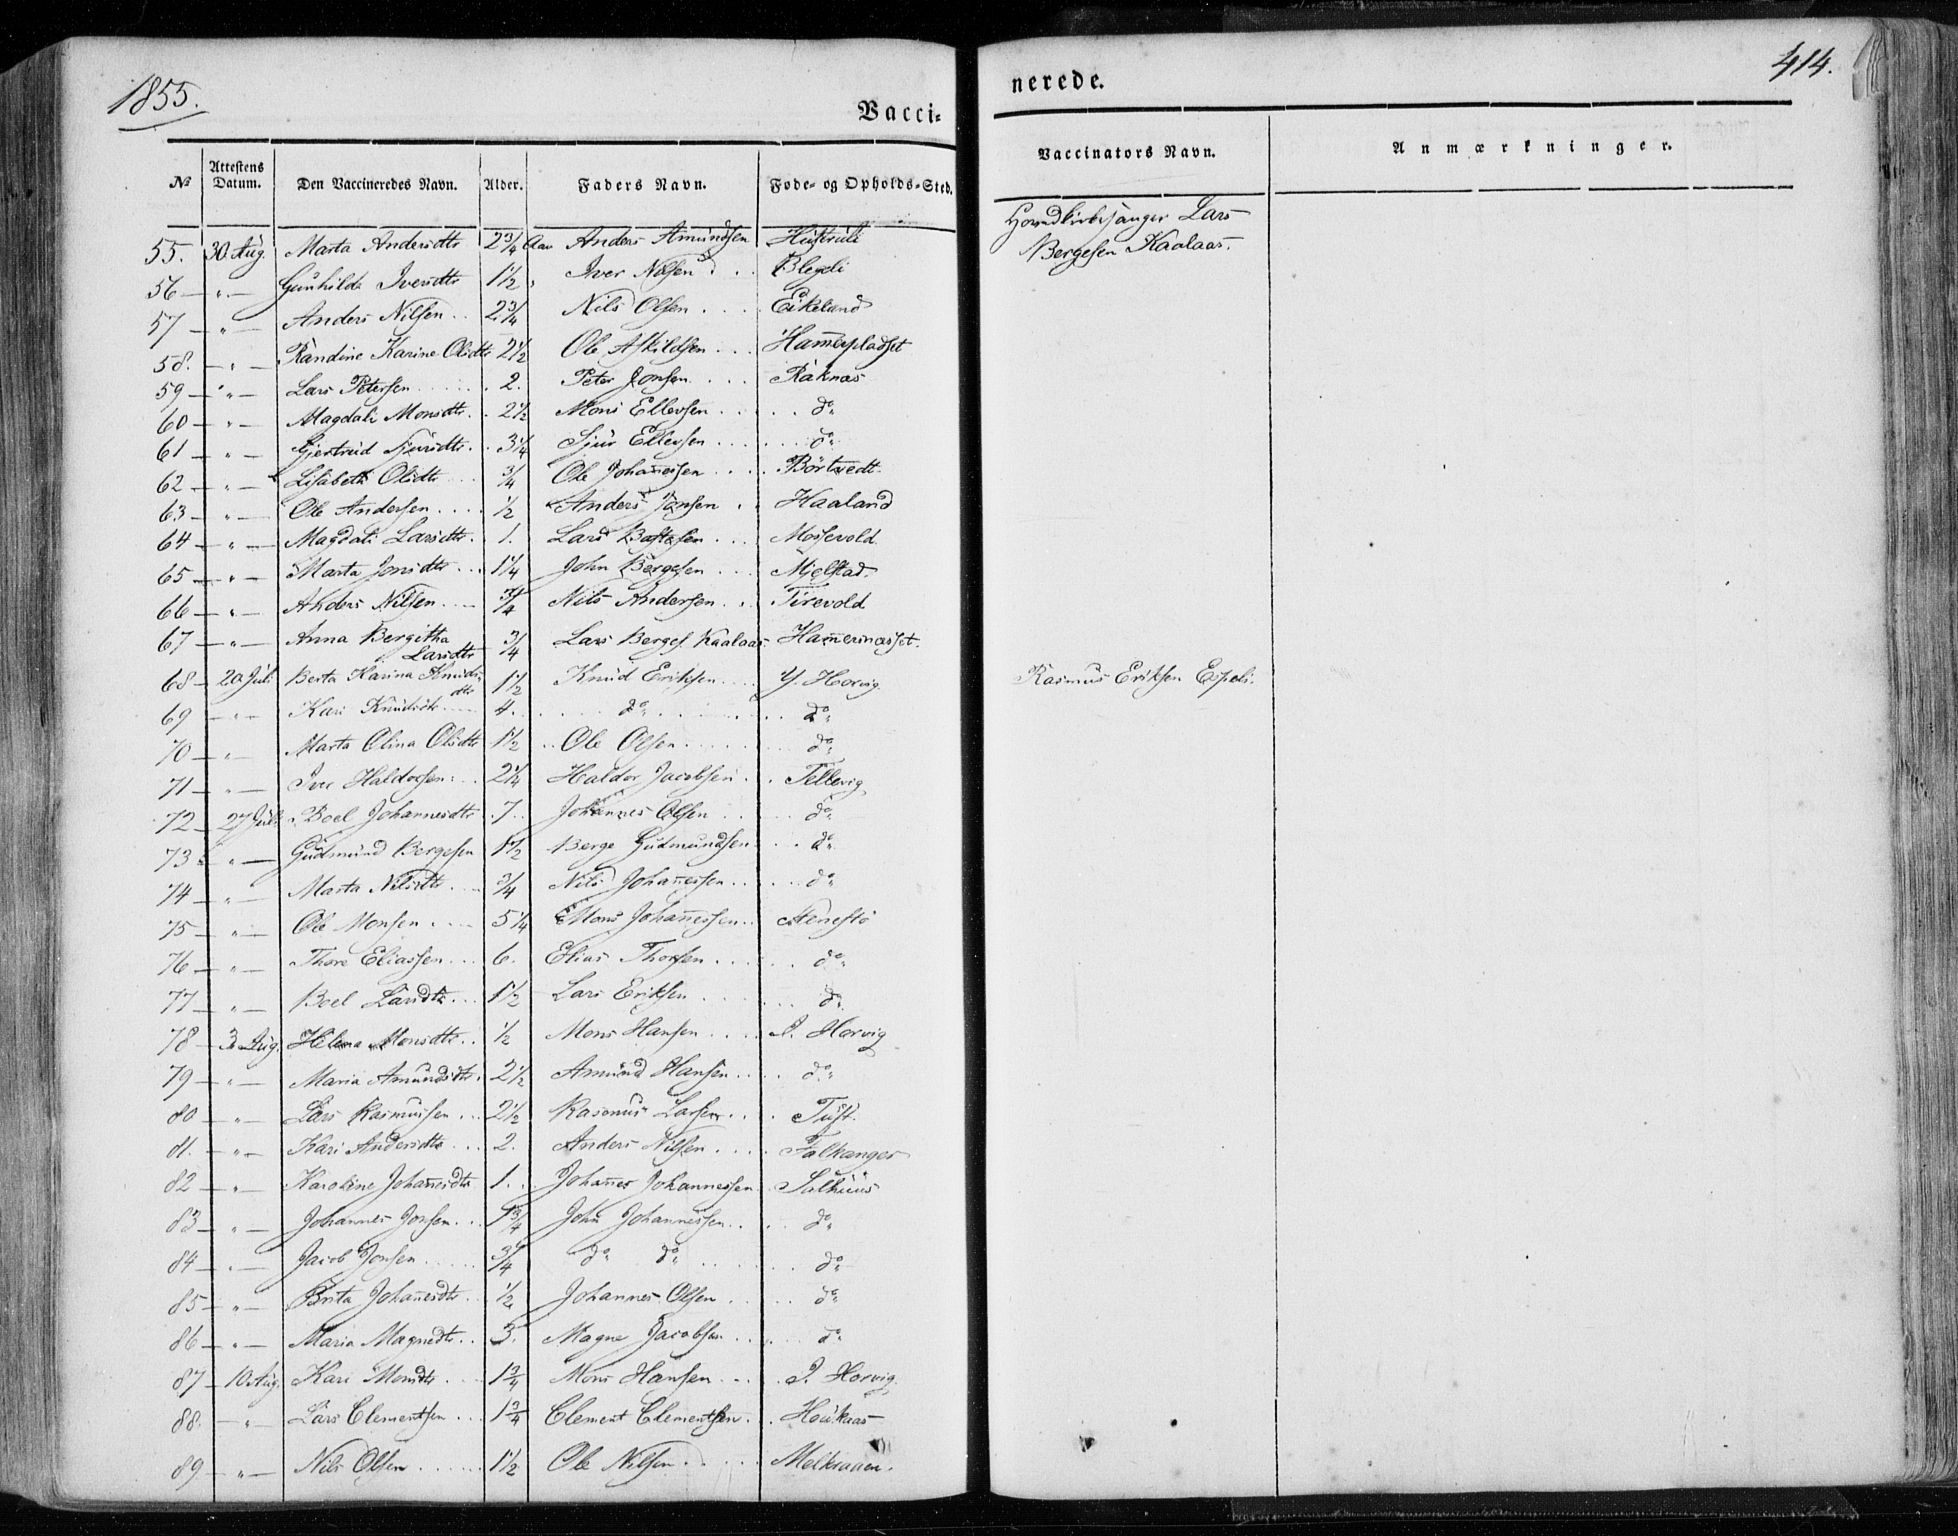 1855.
414.
Vacci-
nerede.
No Attestens Datum. Den Vaccineredes Navn. Alder. Faders Navn. Føde- og Opholds-Sted. Vaccinators Navn. Anmærkninger.
55. 30 Aug. Marta Andersdtr 2 3/4 Aar Anders Amundsen Lars
Bergesen Kaalaas.
56 — „ — Gunhilde Iversdtr 1 1/2 „ Iver Nilsen Blegeli
57 — „ — Anders Nilsen 2 3/4 Nils Olsen Eikeland
58. — „ — Randine Karine Olsdtr 2 1/2 Ole Askildsen Hamerspladset
59 — „ — Lars Petersen 2. Peter Jonsen Raknæs
60 — „ — Magdali Monsdtr 2 1/2 Mons Ellevsen do
61 — „ — Gjertrud Sjursdtr 3 1/4 Sjur Ellevsen do
62 — „ — Lisabeth Olsdtr 3/4 Ole Johanessen Börtvedt
63 — „ — Ole Andersen 1/2 Anders Jonsen Haaland
64 — „ — Magdali Larsdtr 1. Lars Mossevold
65 — „ — Marta Jonsdtr 1 1/4 John Bergesen Mjelstad
66 — „ — Anders Nilsen 3/4 Nils Andersen Tirevold
67 — „ — Anna Bergitha
Larsdtr 3/4 Lars Berges. Kaalaas Hamersnæsset.
68 — 20 Juli Berta Karina Knuds-
dtr 1 1/2 Knud Eriksen Y. Horvig Rasmus Eriksen Espeli.
69 — „ — Kari Knudsdtr 4. do do
70 — „ — Marta Olina Olsdtr 1 1/2 Ole Olsen do
71 — „ — Iver Haldorsen 2 1/4 Haldor Jacobsen Tellevig
72 — 27 Juli Boel Johannesdtr 7 Johannes Olsen do
73 — „ — Gudmund Bergesen 1 1/2 Berge Gudmundsen do
74 — „ — Marta Nilsdtr 3/4 Nils Johanessen do
75 — „ — Ole Monsen 5 1/4 Mons Johanessen Stenestö
76 — „ — Thore Eliassen 6. Elias Thorsen do
77 — „ — Boel Larsdtr 1 1/2 Lars Eriksen do
78 — 3 Aug. Helena Monsdtr 1/2 Mons Hansen I. Horvig
79 — „ — Maria Amundsdtr 2 1/2 Amund Hansen do
80 — „ — Lars Rasmussen 2 1/2 Rasmus Larsen Tuft.
81. — „ — Kari Andersdtr 2. Anders Nilsen Falkanger
82 — „ — Karoline Johanesdtr 1. Johanes Johannessen Salhuus
83 — „ — Johannes Jonsen 1 3/4 John Johannessen do
84 — „ — Jacob Jonsen 3/4 do do do
85 — „ — Brita Johanesdtr 1/2 Johannes Olsen do
86 — „ — Maria Magnedtr 3. Magne Jacobsen do
87 — 10 Aug. Kari Monsdtr 1 3/4 Mons Hansen I. Horvig
88. — „ Lars Clementsen 1 3/4 Clement Clementsen Houkaas
89 — „ — Nils Olsen 1 1/2 Ole Nilsen Melkraaen.